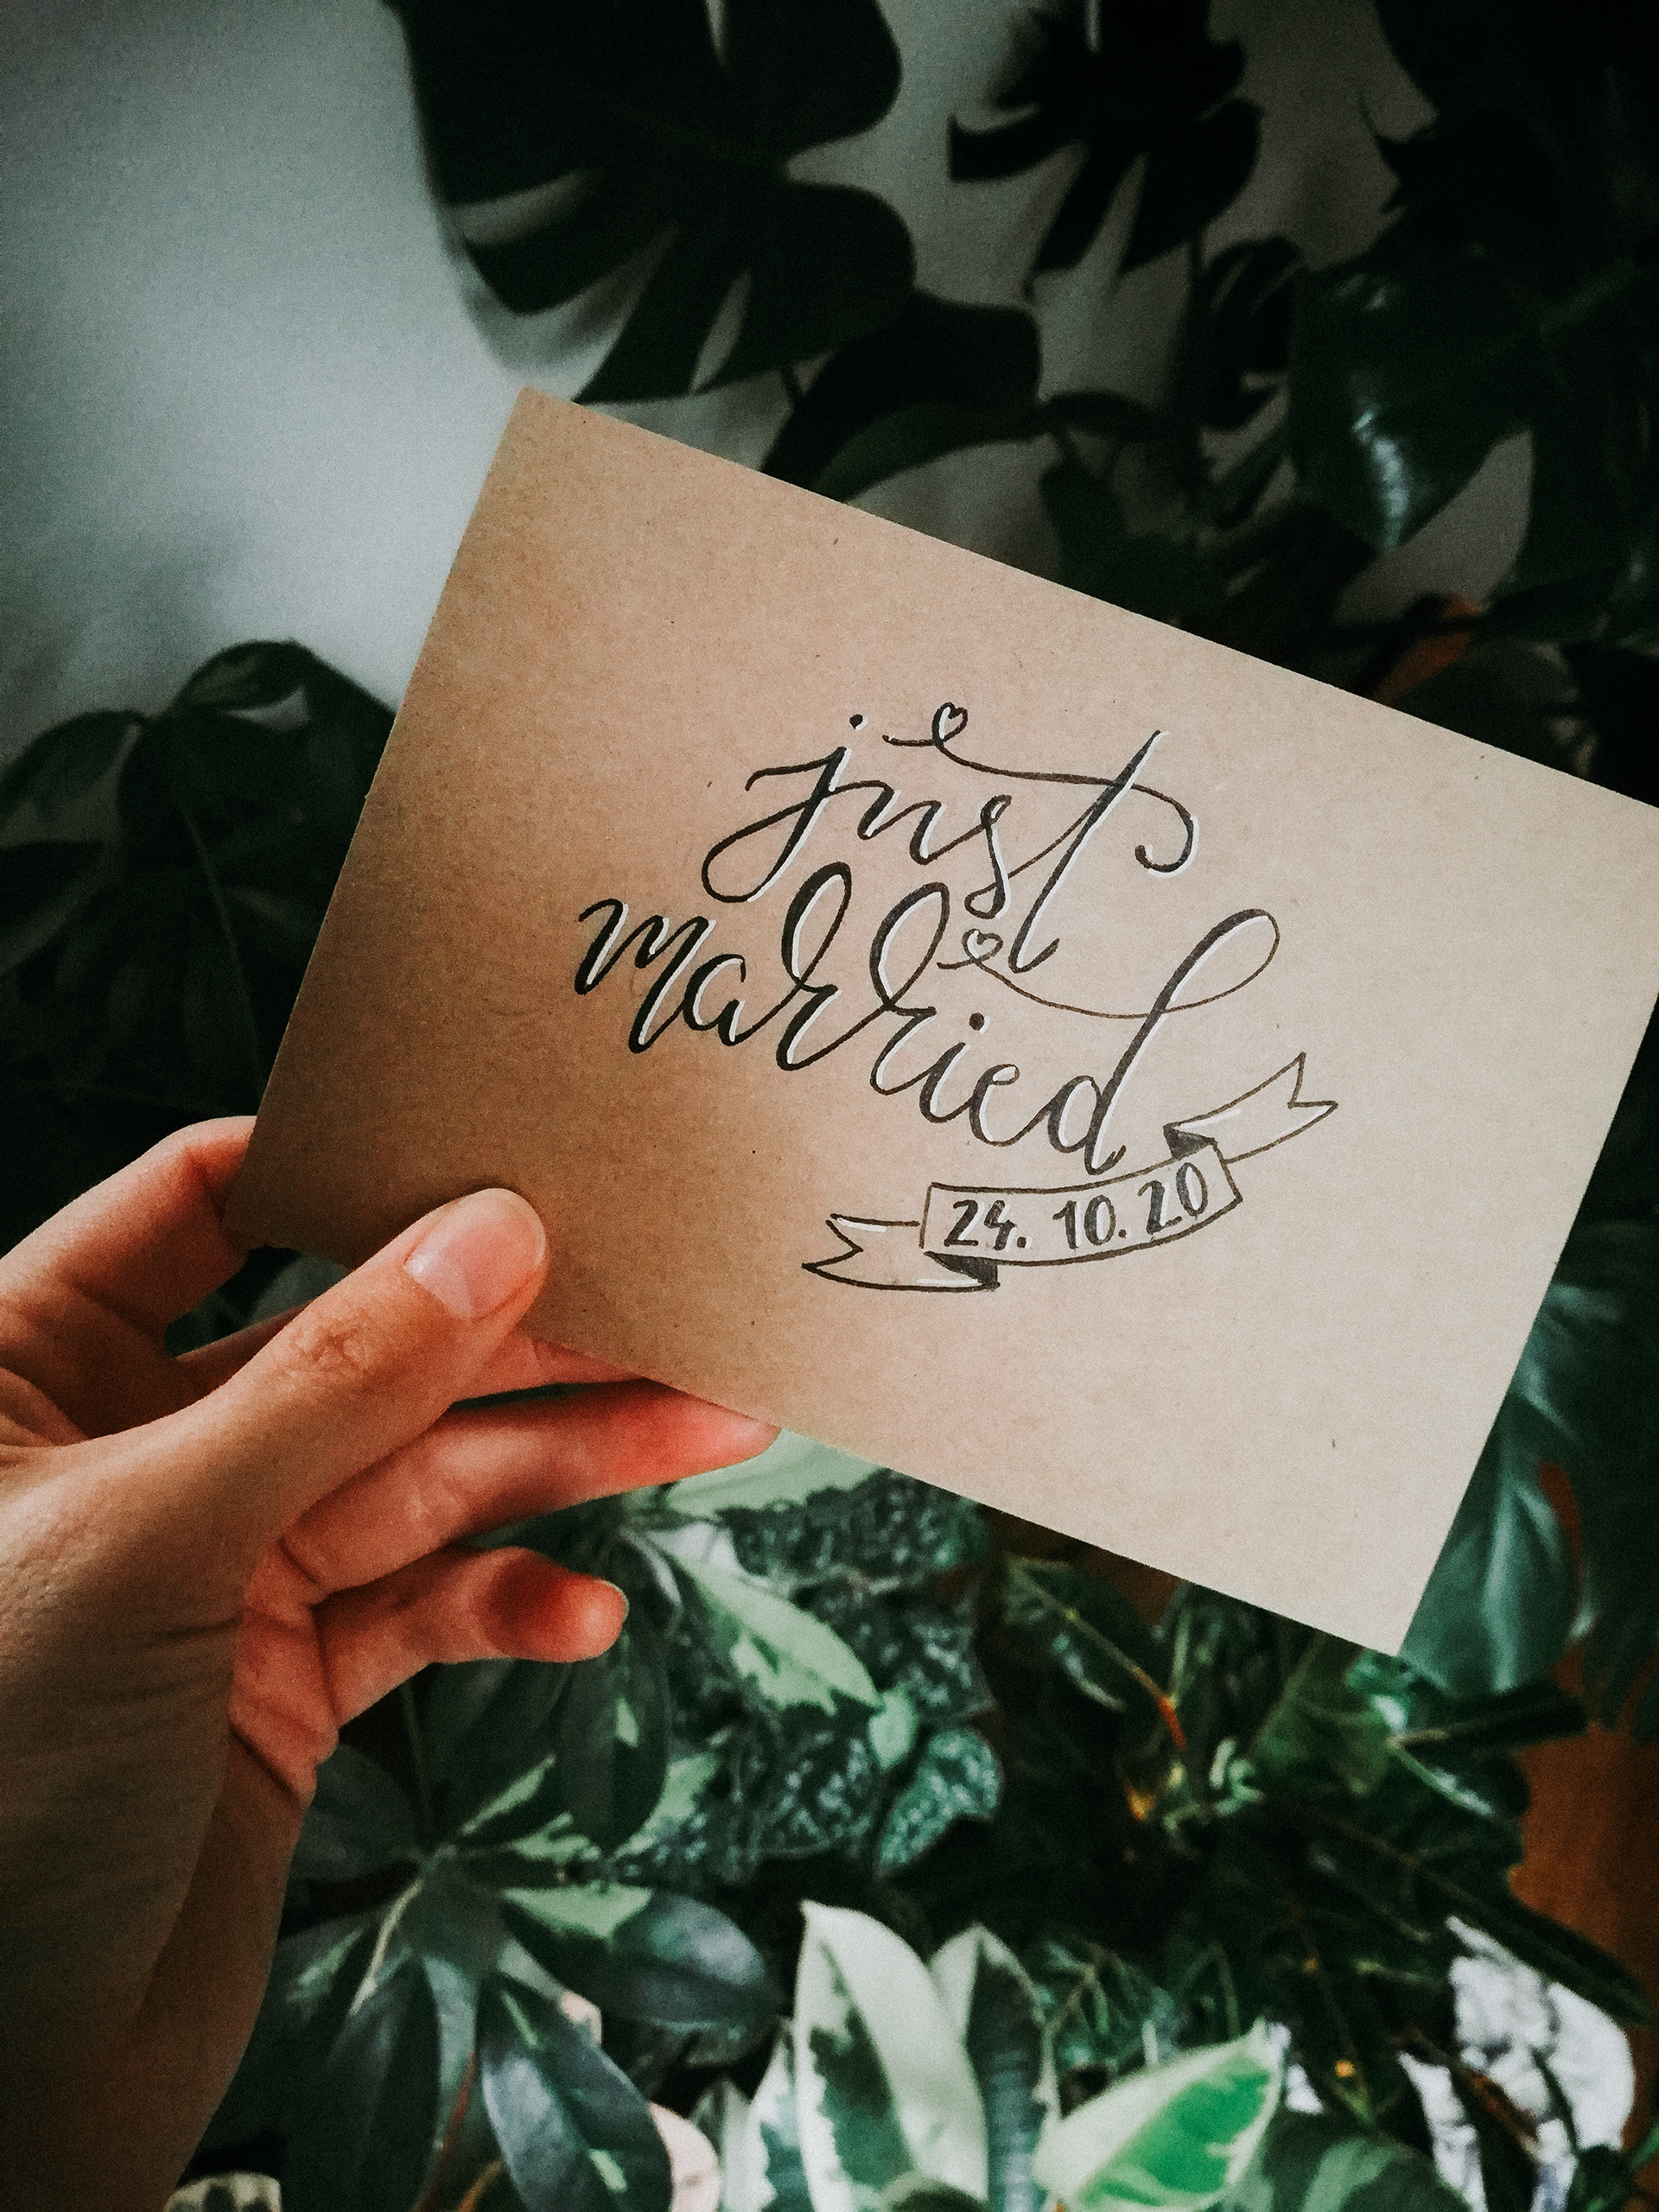 just
married
24.10.20